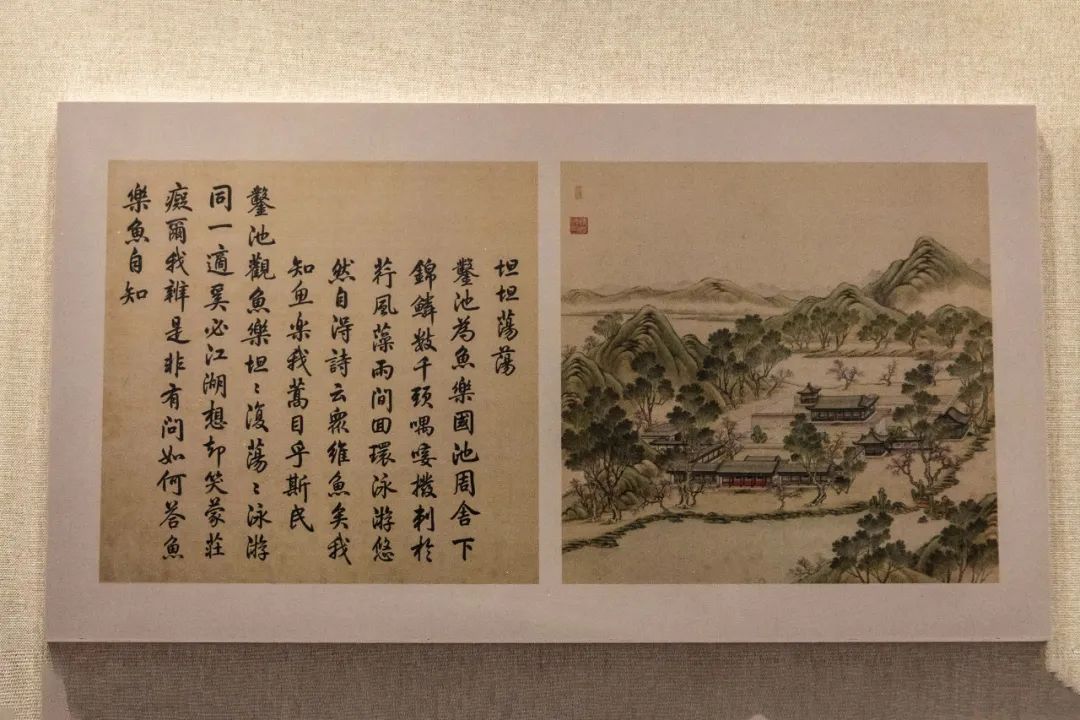 坦坦蕩蕩
鑿池為魚樂國池周舍下
錦鱗数千頭喁唼撥刺於
荇風藻雨間回環泳游悠
然自得詩云衆維魚矣我
知魚楽我蒿目乎斯民
鑿池觀魚樂坦〻復蕩〻泳游
同一適奚必江湖想却笑蒙莊
癡爾我辨是非有問如何答魚
楽魚自知